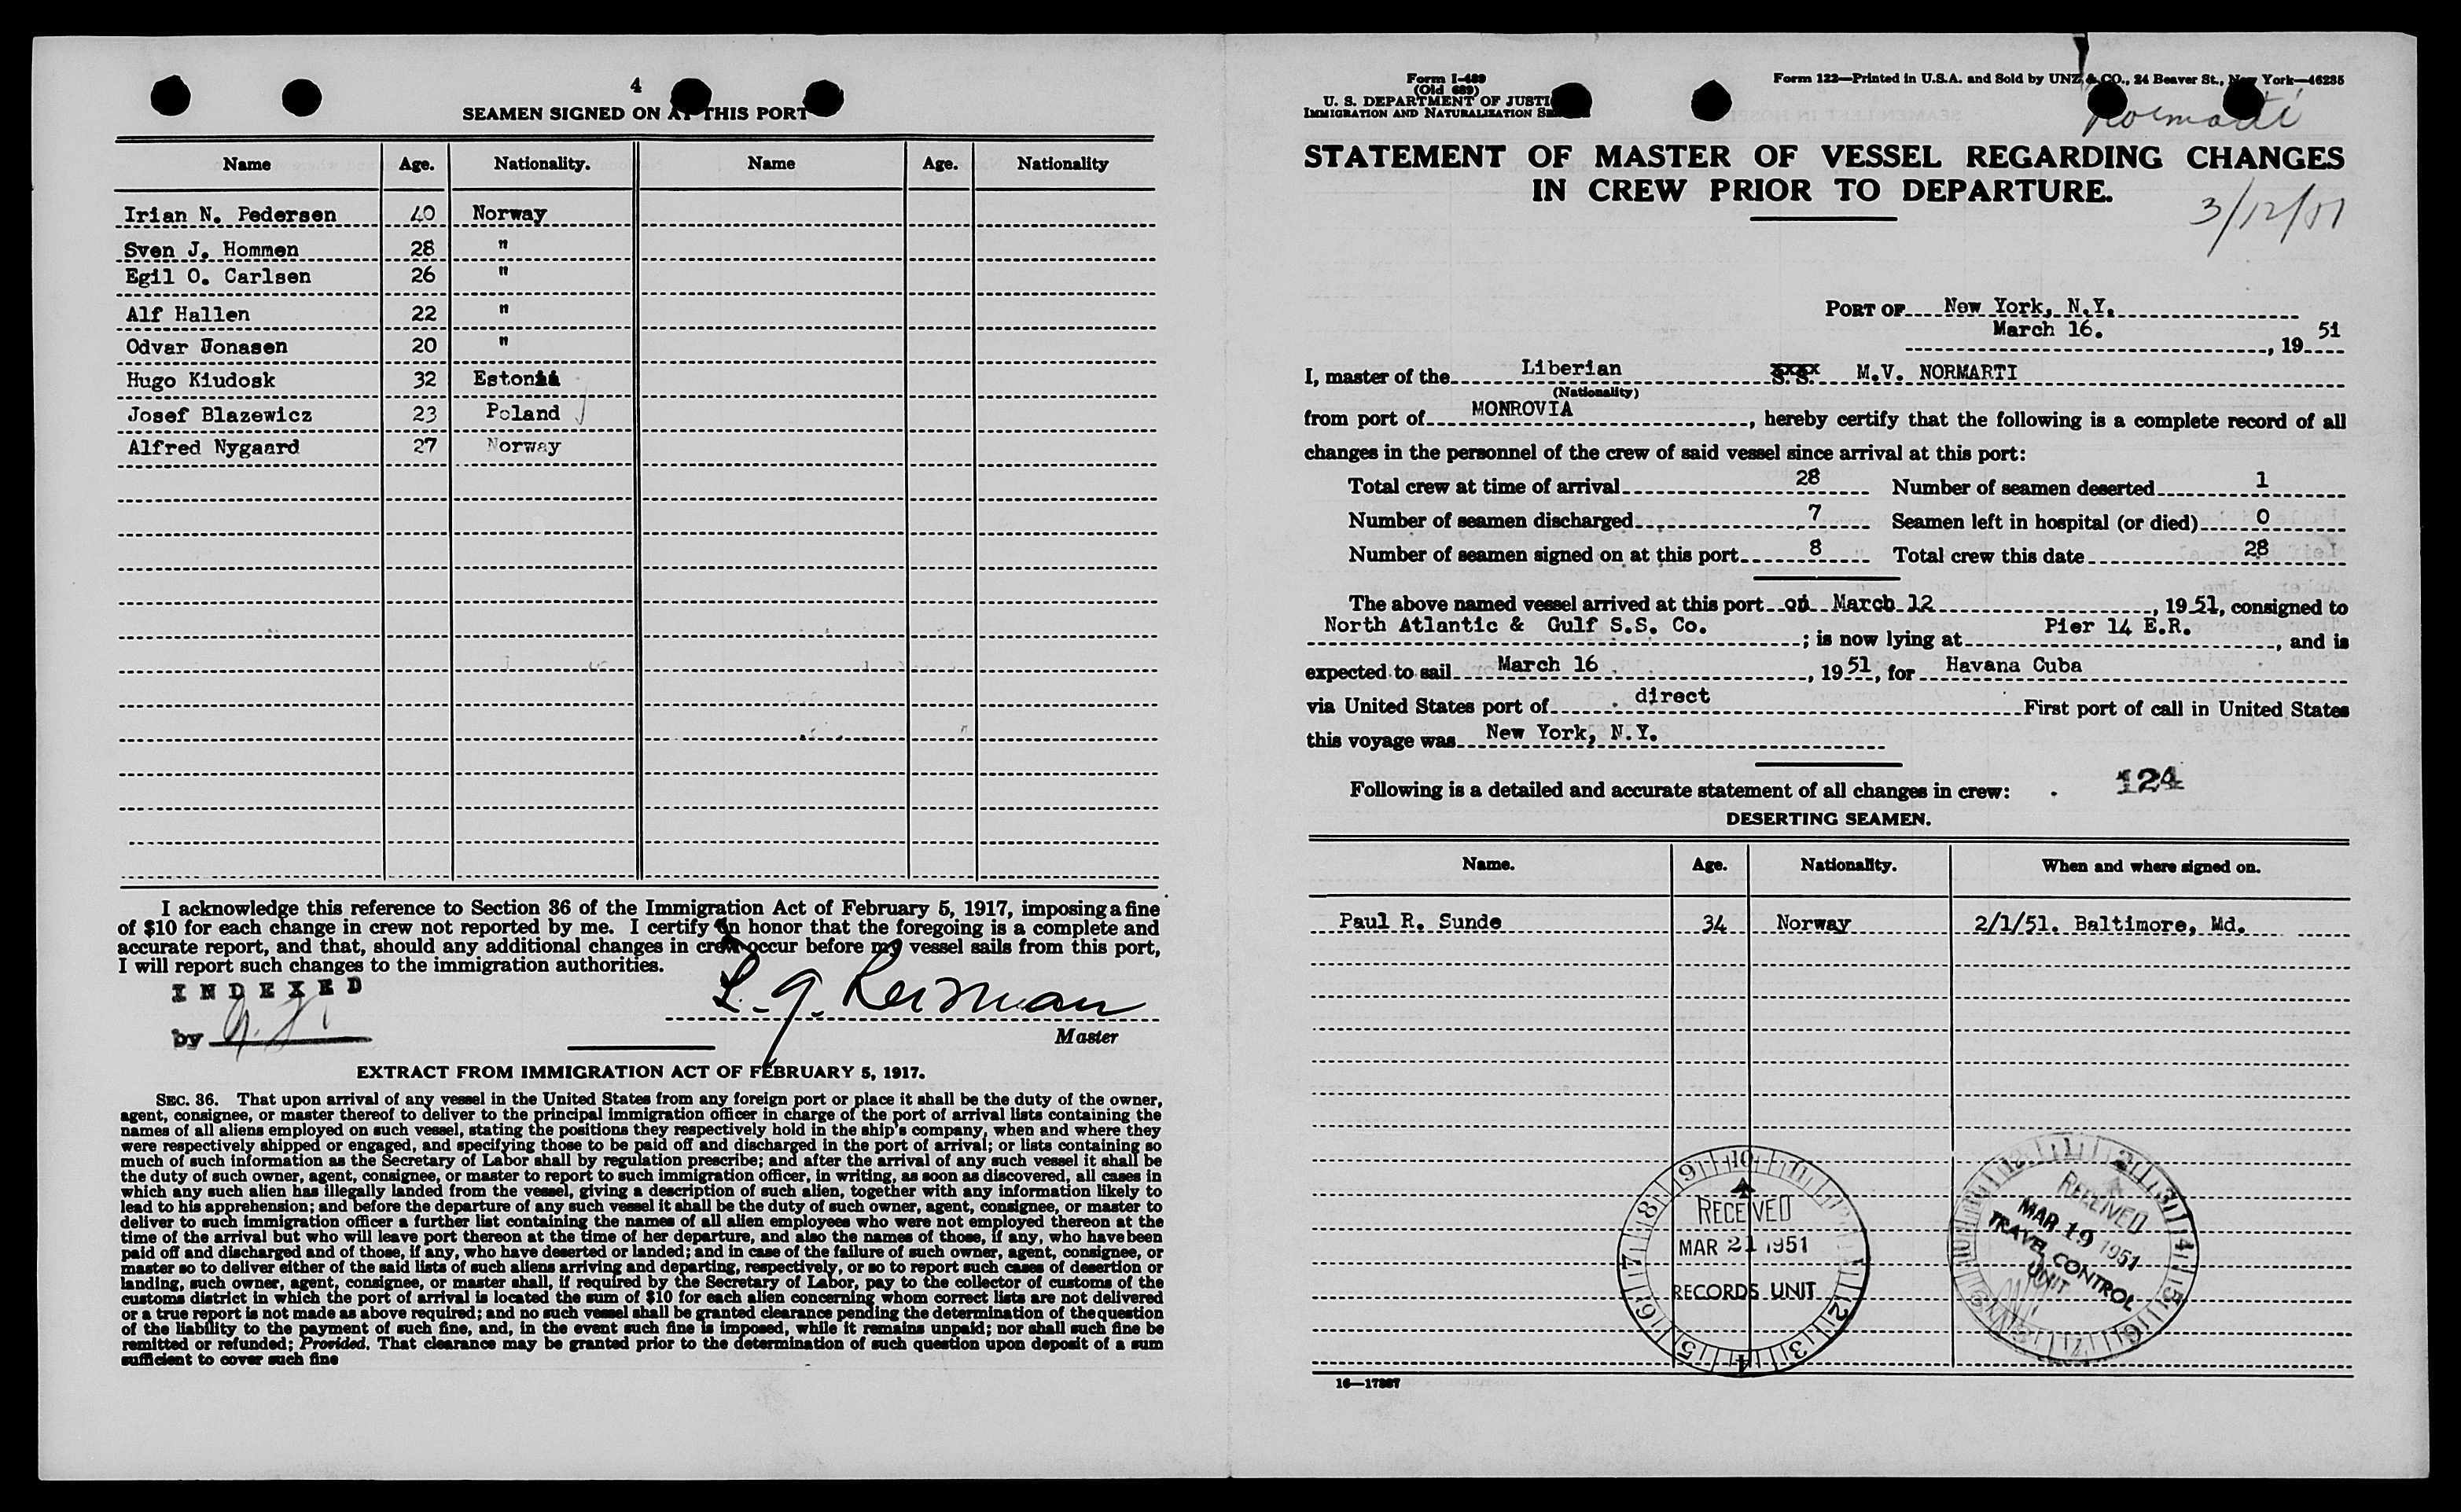 4
SEAMEN SIGNED ON AT THIS PORT
Name Age. Nationality. Name Age. Nationality
Irian N. Pedersen 40 Norway
Sven J. Hommen 28 "
Egil O. Carlsen 26 "
Alf Hallen 22 "
Odvar Jonasen 20 "
Hugo Kiudosk 32 Estonii
Josef Blazewicz 23 Poland
Alfred Nygaard 27 Norway
I acknowledge this reference to Section 36 of the Immigration Act of February 5, 1917, imposing a fine
of $10 for each change in crew not reported by me. I certify on honor that the foregoing is a complete and
accurate report, and that, should any additional changes in crew occur before my vessel sails from this port,
I will report such changes to the immigration authorities.
INDEXED
by
Master
EXTRACT FROM IMMIGRATION ACT OF FEBRUARY 5, 1917.
SEC. 36. That upon arrival of any vessel in the United States from any foreign port or place it shall be the duty of the owner,
agent, consignee, or master thereof to deliver to the principal immigration officer in charge of the port of arrival lists containing the
names of all aliens employed on such vessel, stating the positions they respectively hold in the ship's company, when and where they
were respectively shipped or engaged, and specifying those to be paid off and discharged in the port of arrival; or lists containing so
much of such information as the Secretary of Labor shall by regulation prescribe; and after the arrival of any such vessel it shall be
the duty of such owner, agent, consignee, or master to report to such immigration officer, in writing, as soon as discovered, all cases in
which any such alien has illegally landed from the vessel, giving a description of such alien, together with any information likely to
lead to his apprehension; and before the departure of any such vessel it shall be the duty of such owner, agent, consignee, or master to
deliver to such immigration officer a further list containing the names of all alien employees who were not employed thereon at the
time of the arrival but who will leave port thereon at the time of her departure, and also the names of those, if any, who have been
paid off and discharged and of those, if any, who have deserted or landed; and in case of the failure of such owner, agent, consignee, or
master so to deliver either of the said lists of such aliens arriving and departing, respectively, or so to report such cases of desertion or
landing, such owner, agent, consignee, or master shall, if required by the Secretary of Labor, pay to the collector of customs of the
customs district in which the port of arrival is located the sum of $10 for each alien concerning whom correct lists are not delivered
or a true report is not made as above required; and no such vessel shall be granted clearance pending the determination of the question
of the liability to the payment of such fine, and, in the event such fine is imposed, while it remains unpaid; nor shall such fine be
remitted or refunded; Provided, That clearance may be granted prior to the determination of such question upon deposit of a sum
sufficient to cover such fine
Form I-489
(Old 689)
U. S. DEPARTMENT OF JUSTI
IMMIGRATION AND NATURALIZATION SE
Form 122—Printed in U.S.A. and Sold by UNZ & CO., 24 Beaver St., New York—46235
STATEMENT OF MASTER OF VESSEL REGARDING CHANGES
IN CREW PRIOR TO DEPARTURE.
3/12/51
PORT OF New York, N.Y.
March 16. , 19 51
I, master of the Liberian S.S. M.V. NORMARTI
(Nationality)
from port of MONROVIA , hereby certify that the following is a complete record of all
changes in the personnel of the crew of said vessel since arrival at this port:
Total crew at time of arrival 28 Number of seamen deserted 1
Number of seamen discharged 7 Seamen left in hospital (or died) 0
Number of seamen signed on at this port 8 Total crew this date 28
The above named vessel arrived at this port on March 12 , 1951, consigned to
North Atlantic & Gulf S.S. Co. ; is now lying at Pier 14 E.R. , and is
expected to sail March 16 , 1951, for Havana Cuba
via United States port of direct First port of call in United States
this voyage was New York, N.Y.
Following is a detailed and accurate statement of all changes in crew: 124
DESERTING SEAMEN.
Name. Age. Nationality. When and where signed on.
Paul R. Sunde 34 Norway 2/1/51. Baltimore, Md.
RECEIVED
MAR 21 1951
RECORDS UNIT
RECEIVED
MAR 19 1951
TRAVEL CONTROL
UNIT
16—17387